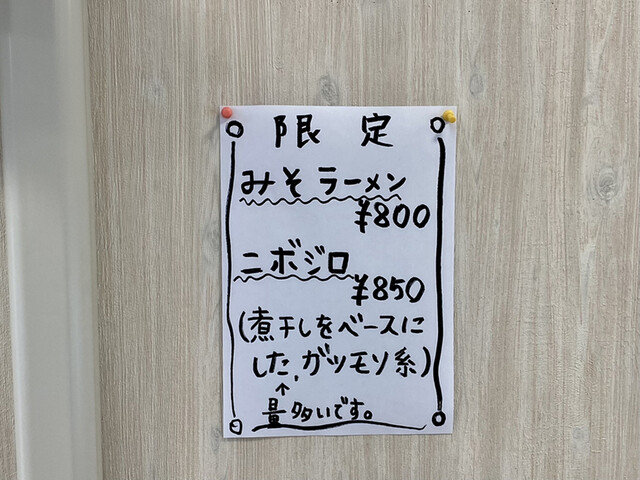 限定
みそラーメン
¥800
ニボジロ
¥850
(煮干しをベースに
した,ガツモソ系)
↑
量多いです。